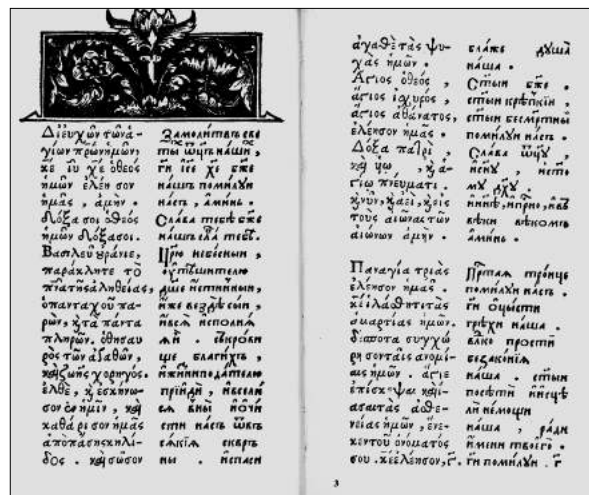 Διευχῶν τῶν ἁ-
γίων πρων ἡμῶν,
κε ιυ χε ὁ θεὸς
ἡμῶν ἐλέησον
ἡμᾶς, ἀμὴν.
Δόξα σοι ὁ θεὸς
ἡμῶν δόξα σοι.
Βασιλεῦ οὐράνιε,
παράκλητε τὸ
πνα τῆς ἀληθείας,
ὁ πανταχοῦ πα-
ρὼν, κ τὰ πάντα
πληρῶν. ὁ θησαυ
ρὸς τῶν ἀγαθῶν,
κ ζωῆς χορηγὸς.
ἐλθὲ, κ ἐσκήνω-
σον ἐν ἡμῖν, κ
καθάρισον ἡμᾶς
ἀπὸ πάσης κηλί-
δος. κ σῶσον
За молитвъ свѧ
ты ѿцъ наши,
ги ісе хе бже
нашъ помилѹи
насъ, аминь.
Слава тебѣ бже
нашъ сла тебѣ.
Црю небесныи,
ѹтѣшителю
дше истинныи,
иже вездѣ сыи,
и всѧ исполнѧ
ѧи. съкрови
ще благихъ,
и жизни подателю
прїиди, и всели
сѧ вны и очи
сти насъ ѿвъ
сѧкїѧ сквръ
ны. и спаси
ἀγαθὲ τὰς ψυ-
χὰς ἡμῶν.
Ἅγιος ὁ θεός,
ἅγιος ἰσχυρός,
ἅγιος ἀθάνατος,
ἐλέησον ἡμᾶς.
Δόξα πατρὶ,
κ ὑῳ, κ ἁ-
γίῳ πνεύματι.
κ νῦν, κ ἀεὶ, κ εἰς
τοὺς αἰῶνας τῶν
αἰώνων ἀμὴν.
Παναγία τριὰς
ἐλέησον ἡμᾶς.
κε ἱλάσθητι ταῖς
ἁμαρτίαις ἡμῶν.
δέσποτα συγχώ
ρησον ταῖς ἀνομί-
αις ἡμῶν. ἅγιε
ἐπίσκεψαι κ ἴ-
ασαι τὰς ἀσθε-
νείας ἡμῶν, ἕνε-
κεν τοῦ ὀνόματός
σου. κε ἐλέησον, γ.
блаже дѹша
наша.
Стыи бже,
стыи крѣпкїи,
стыи бесмертныи
помилѹи насъ.
Слава ѿцѹ,
и снѹ, и сто
мѹ дхѹ.
и ннѣ, и прно, и въ
вѣки вѣкомъ
аминь.
Престаѧ троице
помилѹи насъ.
ги оцѣсти
грѣхи наша.
влко прости
безаконїѧ
наша. стыи
посѣти и исцѣ
ли немощи
наша, ради
имени твоего.
ги помилѹи. г
3